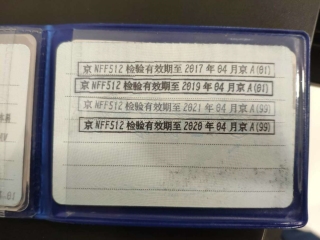 京 NFF512 检验有效期至 2017 年 04 月京 A(01)
京 NFF512 检验有效期至 2019 年 04 月京 A(01)
京 NFF512 检验有效期至 2021 年 04 月京 A(99)
京 NFF512 检验有效期至 2020 年 04 月京 A(99)